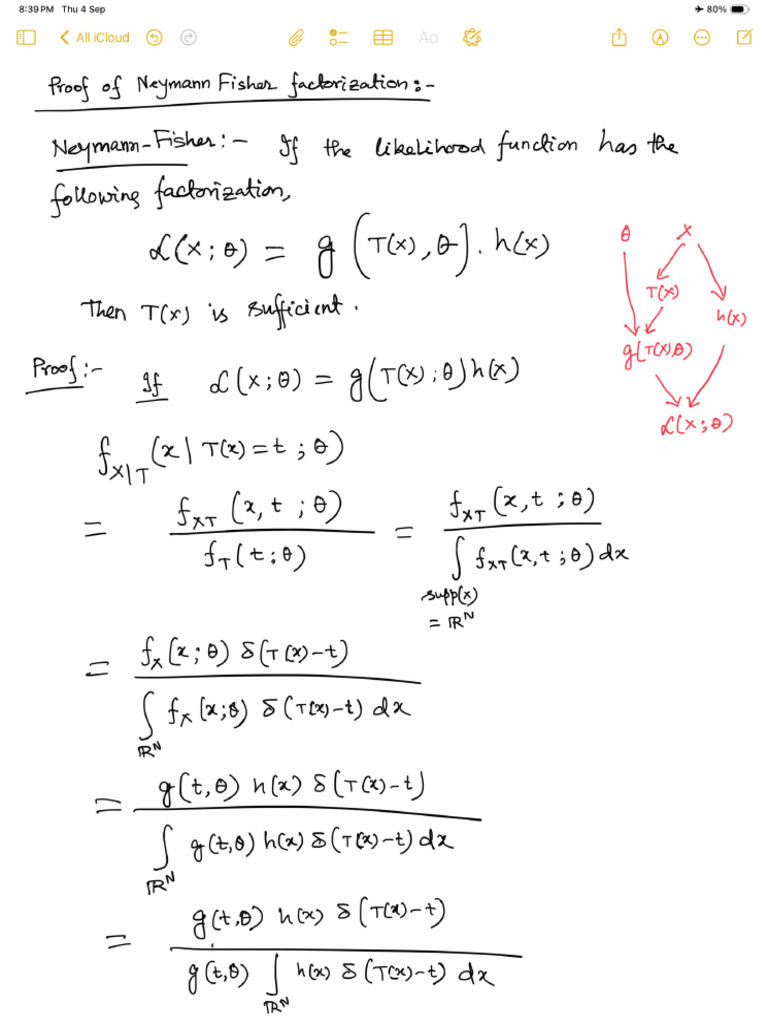 8:39 PM Thu 4 Sep
80%
All iCloud
Aa
Proof of Neymann Fisher factorization:-
Neymann-Fisher:- If the likelihood function has the
following factorization,
ℒ(x;θ) = g(T(x),θ). h(x)
Then T(x) is sufficient.
θ x
T(x)
h(x)
g(T(x),θ)
ℒ(x;θ)
Proof:- If ℒ(x;θ) = g(T(x);θ)h(x)
f_{X|T}(x|T(x)=t;θ)
= f_{XT}(x,t;θ) / f_T(t;θ) = f_{XT}(x,t;θ) / ∫_{supp(x) = ℝ^N} f_{XT}(x,t;θ)dx
= f_X(x;θ) δ(T(x)-t) / ∫_{ℝ^N} f_X(x;θ) δ(T(x)-t) dx
= g(t,θ) h(x) δ(T(x)-t) / ∫_{ℝ^N} g(t,θ) h(x) δ(T(x)-t) dx
= g(t,θ) h(x) δ(T(x)-t) / g(t,θ) ∫_{ℝ^N} h(x) δ(T(x)-t) dx